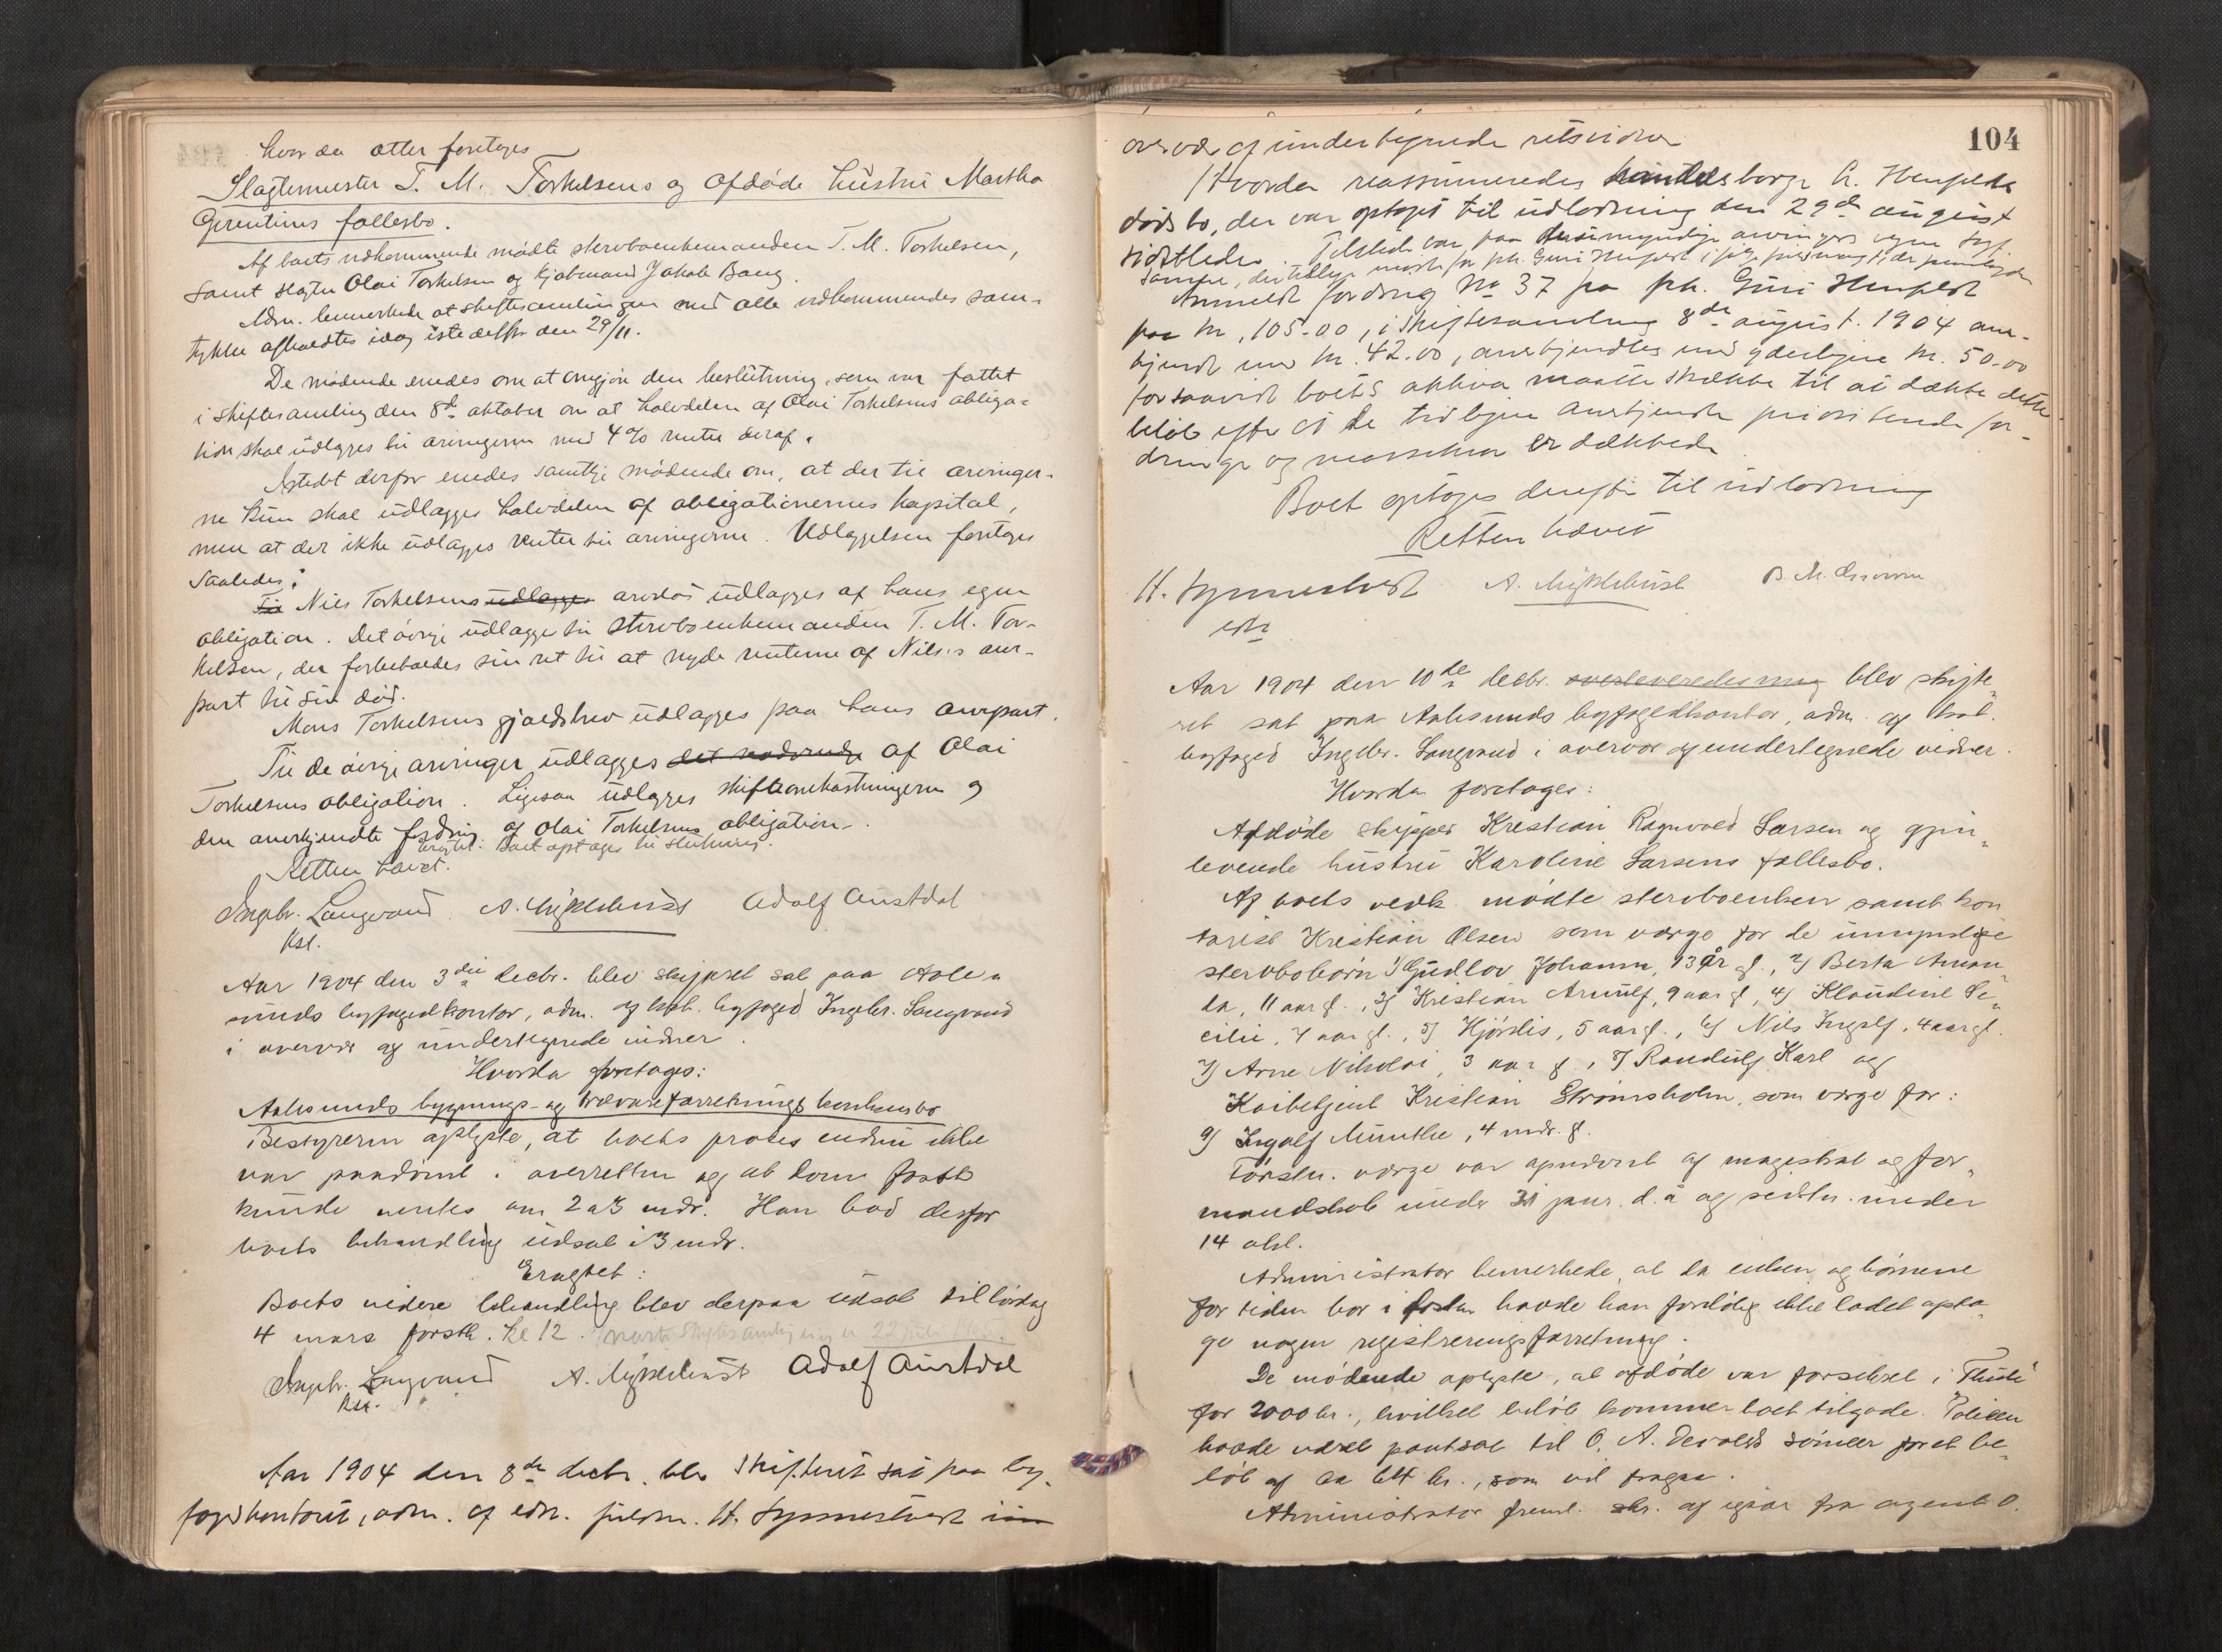 hvor da atter foretoges
Slagtermester T. M. Torkelsens og afdøde hustru Martha
Gerentines fællesbo.
Af boets vedkommende mødte stervboenkemanden T. M. Torkelsen,
samt slagter Olai Torkelsen og kjøbmand Jakob Bang.
Adm. bemerkede at skiftesamlingen med alle vedkommendes sam-
tykke afholdtes idag istedetfor den 29/11.
De mødende enedes om at omgjøre den beslutning, som var fattet
i skiftesamling den 8de oktober om at halvdelen af Olai Torkelsens obliga-
tion skal udlægges til arvingerne med 4% renter deraf.
Istedet derfor enedes samtlige mødende om, at der til arvinger-
ne kun skal udlægges halvdelen af obligationernes kapital,
men at der ikke udlægges renter til arvingerne. Udlæggelsen foretoges
saaledes:
Til Nils Torkelsens udlægges arvelod udlægges af hans egen
obligation. Det øvrige udlægges til stervboenkemanden T. M. Tor-
kelsen, der forbeholdes sin ret til at nyde renterne af Nils's arve-
part til sin død.
Mons Torkelsens gjældsbrev udlægges paa hans arvepart.
Til de øvrige arvinger udlægges det nødvendige af Olai
Torkelsens obligation. Ligesaa udlægges skifteomkostningerne og
den anerkjendte fordring af Olai Torkelsens obligation.
Eragtet: Boet optages til slutning.
Retten hævet.
Ingebr. Langvand A. Myklebust Adolf Aurdal
kst.
Aar 1904 den 3die decbr. blev skifteret sat paa Aale-
sunds byfogedkontor, adm. af kst. byfoged Ingebr. Langvand
i overvær af undertegnede vidner.
Hvorda foretoges:
Aalesunds bygnings- og trævareforretnings konkursbo
Bestyreren oplyste, at boets proces endnu ikke
var paadømt i overretten og at dom først
kunde ventes om 2 a 3 mdr. Han bad derfor
boets behandling udsat i 3 mdr.
Eragtet:
Boets videre behandling blev derpaa udsat til lørdag
4 mars førstk. kl 12.
Ingebr. Langvand A. Myklebust Adolf Aurdal
kst.
Aar 1904 den 8de decbr. blev skifteret sat paa by-
fogedkontoret, adm. af edsv. fuldm. H. Synnestvedt i
overvær af undertegnede retsvidner
Hvorda reassumeredes handelsborger A.
dødsbo, der var optaget til udlodning den 29de august
sidstleden. Tilstede var paa
Anmeldt fordring No 37 fra frk. Guri
paa kr. 105.00, i skiftesamling 8de august 1904 aner-
kjendt med kr. 42.00, anerkjendtes med yderligere kr. 50.00
forsaavidt boets aktiva maatte strække til at dække dette
beløb efter at de tidligere anerkjendte prioriterede for-
dringer og massekrav er dækkede
Boet optoges derefter til udlodning
Retten hævet
H. Synnestvedt A. Myklebust B. M.
edsv.
Aar 1904 den 10de decbr. blev skifte-
ret sat paa Aalesunds byfogedkontor, adm. af kst.
byfoged Ingebr. Langvand i overvær af undertegnede vidner.
Hvorda foretoges:
Afdøde skipper Kristian Ragnvald Larsen og gjen-
levende hustru Karoline Larsens fællesbo.
Af boets vedk. mødte stervboenken samt kon
torist Kristian Olsen som værge for de umyndige
stervbobørn 1) Gudlov Johanna, 13 år gl., 2) Berta Aman-
da, 11 aar gl., 3) Kristian Arnulf, 9 aar gl, 4) Klaudine Se-
cilie, 7 aar gl., 5) Hjørdis, 5 aar gl., 6) Nils Ingolf, 4 aar gl.
7) Arne Nikolai, 3 aar gl, 8) Randulf Karl og
Kaibetjent Kristian Strømsholm, som værge for:
9) Ingolf Munthe, 4 mdr. gl.
Førstn. værge var opnævnt af magistrat og for-
mandskab under 31 janr. d. å og sidstn. under
14 okt.
Administrator bemerkede, at da enken og børnene
for tiden bor i havde han foreløbig ikke ladet opta-
ge nogen registreringsforretning.
De mødende oplyste, at afdøde var forsikret i "Thule"
for 2000 kr., hvilket beløb kommer boet tilgode. Policen
havde været pantsat til O. A. Devolds sønner for et be-
løb af ca kr., som vil fragaa.
Administrator freml. skr. af igaar fra agent O.
104